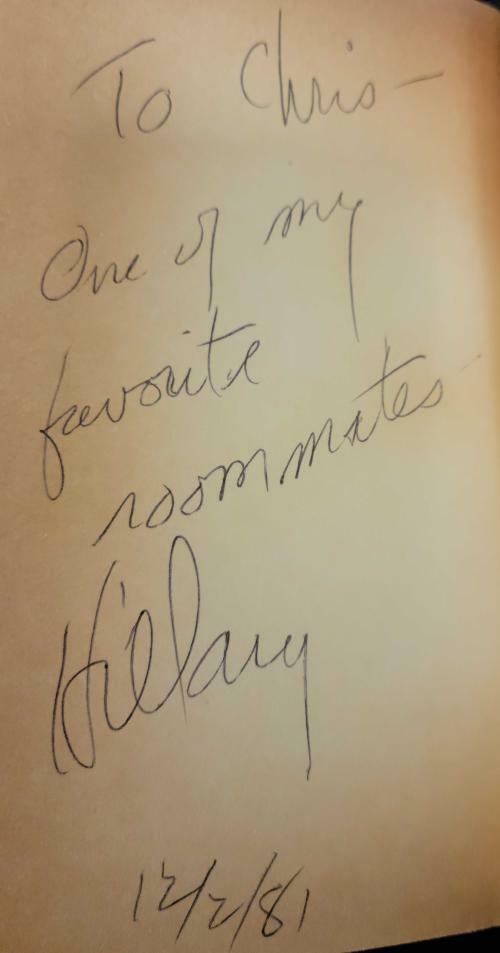 To Chris —
One of my
favorite
roommates
Hillary
12/2/81